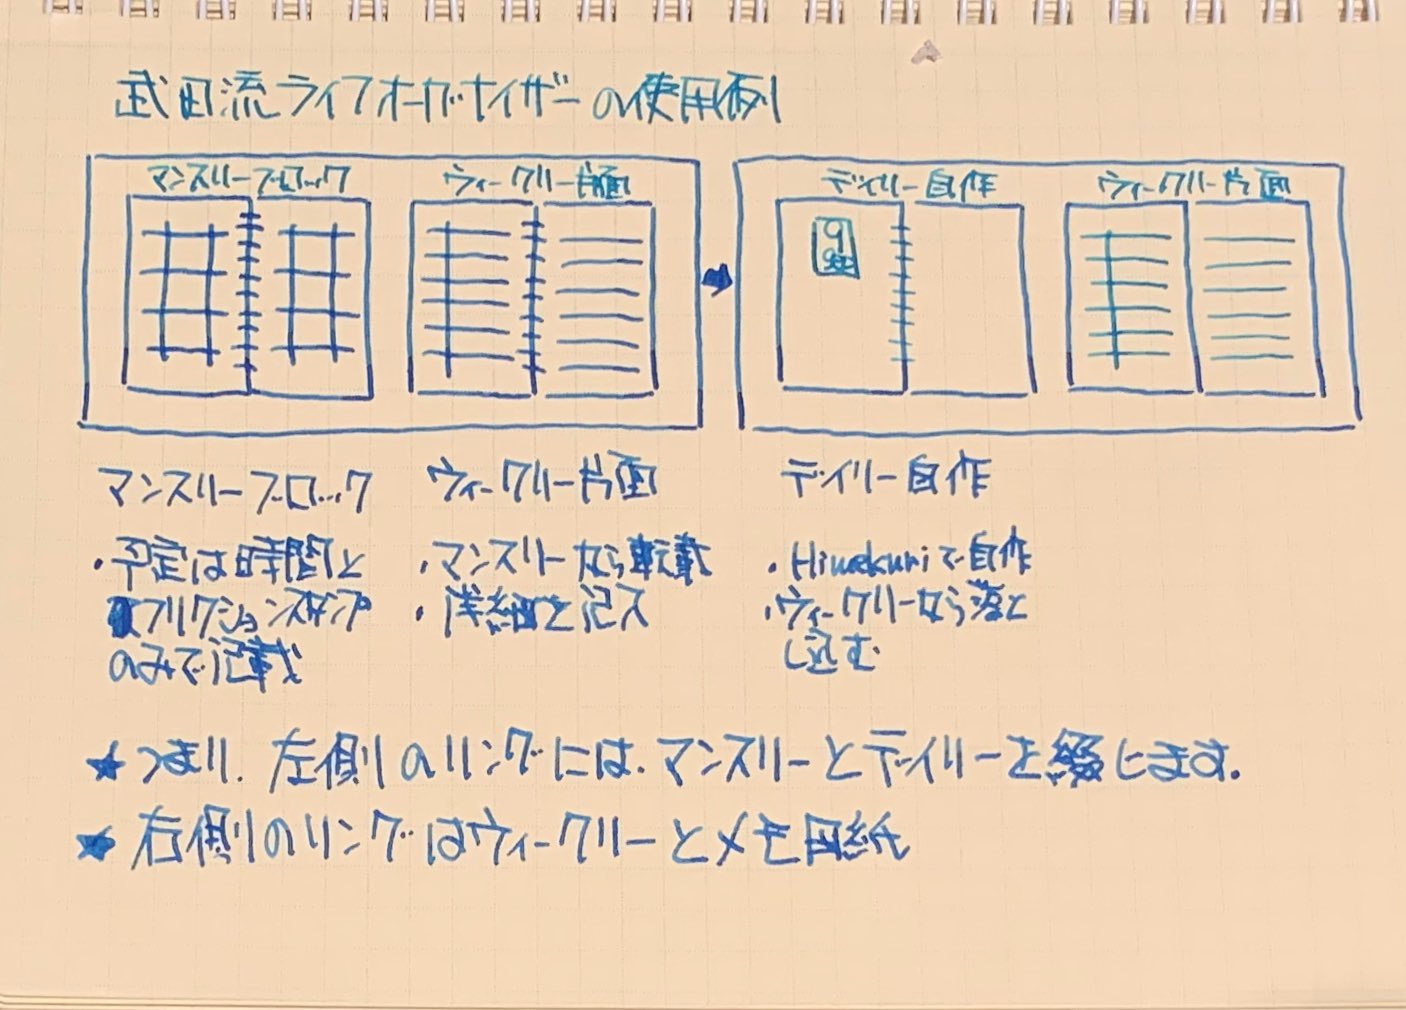 武田流ライフオーガナイザーの使用例
マンスリーブロック ウィークリー片面 デイリー自作 ウィークリー片面
9
マンスリーブロック ウィークリー片面 デイリー自作
・予定は時間と
フリクションスタンプ
のみで記載
・マンスリーから転載
・詳細を記入
・Himekuriで自作
・ウィークリーから落と
し込む
★つまり、左側のリングには、マンスリーとデイリーを綴じます。
★右側のリングはウィークリーとメモ用紙